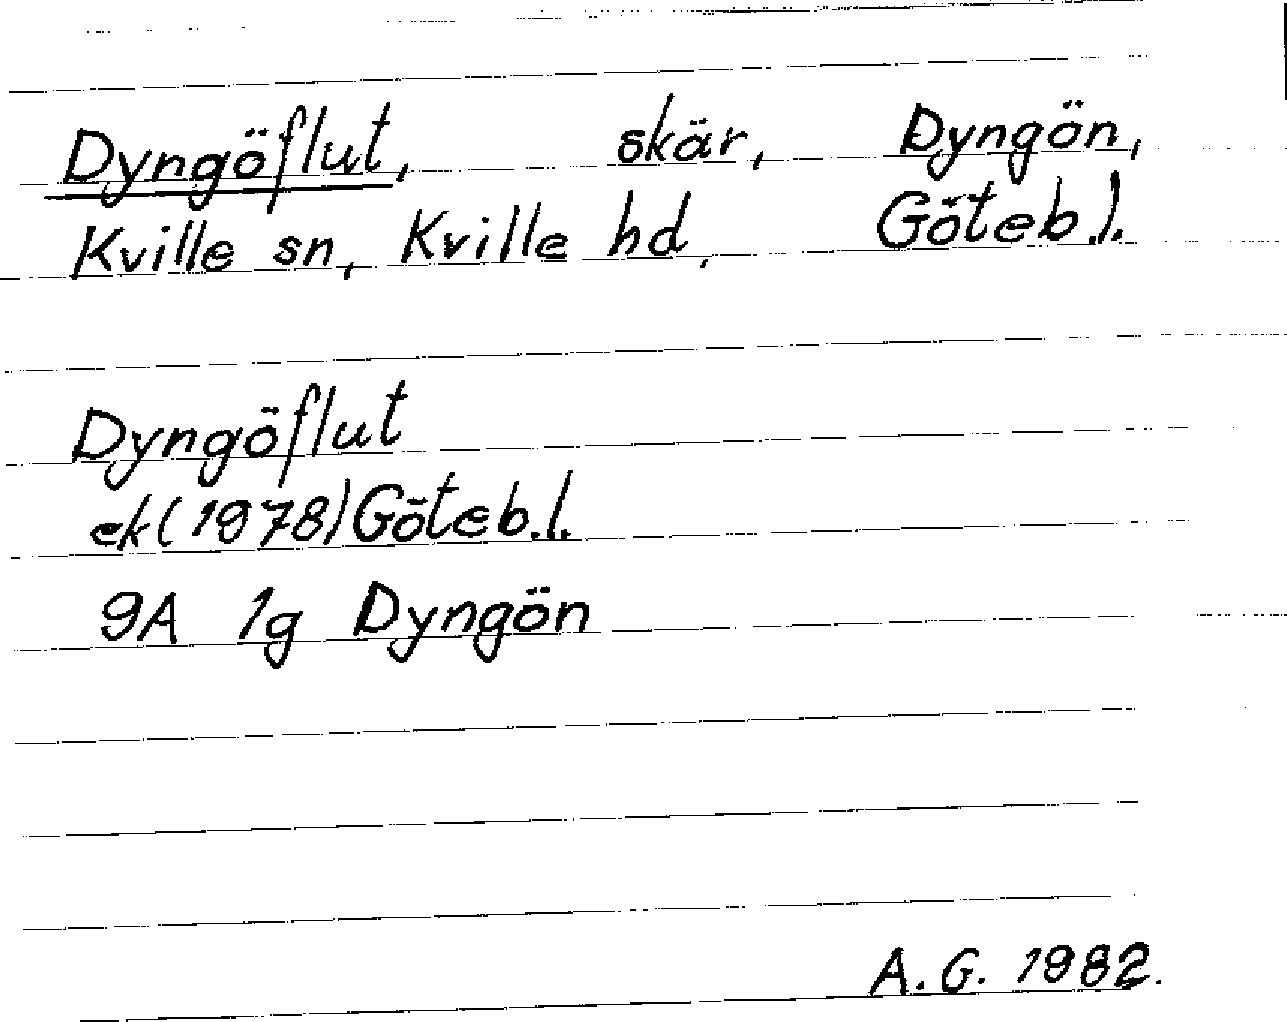 Dyngöflut, skär, Dyngön,
Kville sn, Kville hd, Göteb.l.
Dyngöflut
ek(1978)Göteb.l.
9A 1g Dyngön
A.G. 1982.